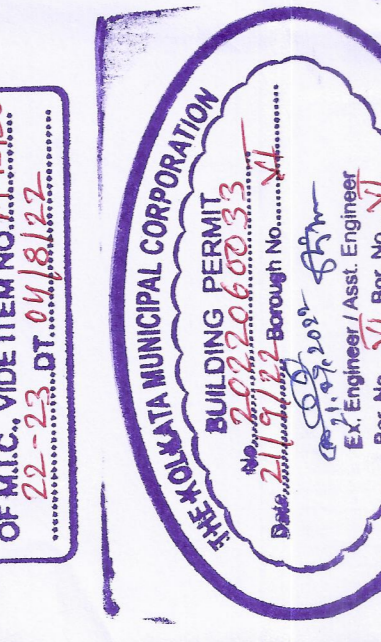 OF M.I.C., VIDE ITEM NO.
22-23 DT. 04/8/22
THE KOLKATA MUNICIPAL CORPORATION
BUILDING PERMIT
No. 2022060033
Date. 21/9/22 Borough No. VI
21.09.2022
Ex. Engineer / Asst. Engineer
Bor. No. VI Bor. No. VI